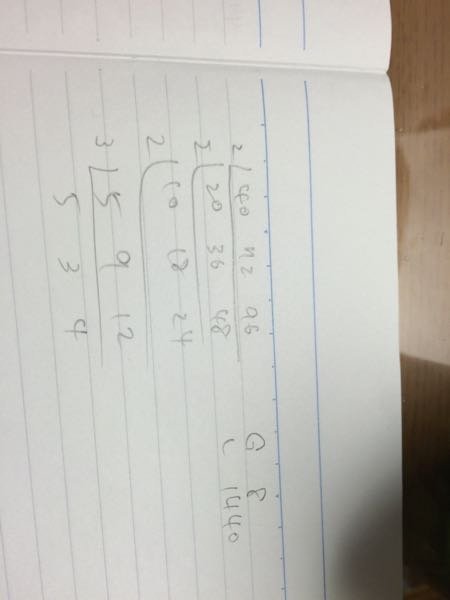 2 40 72 96 G 8
2 20 36 48 L 1440
2 10 18 24
3 5 9 12
5 3 4